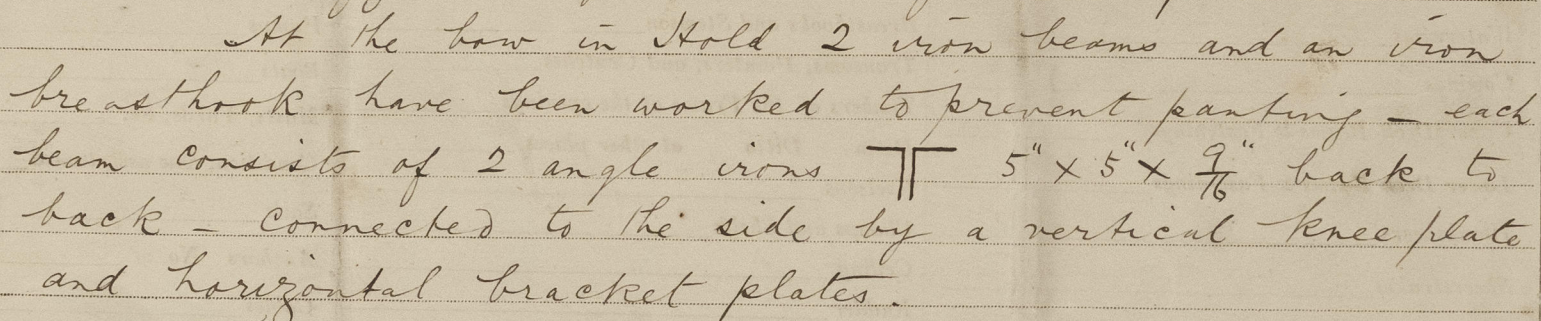 At the bow in Hold 2 iron beams and an iron
breasthook have been worked to prevent panting — each
beam consists of 2 angle irons 5" x 5" x 9/16" back to
back — connected to the side by a vertical knee plate
and horizontal bracket plates.